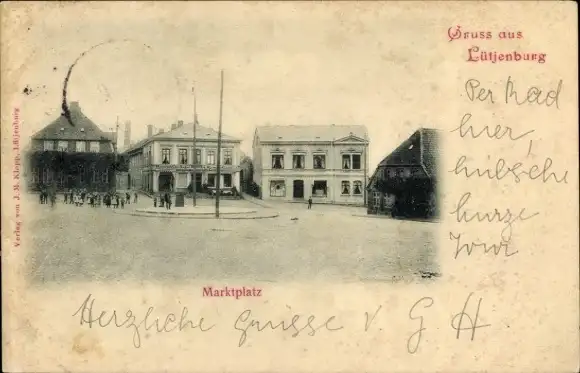 Gruss aus
Lütjenburg
Per Rad
hier,
hübsche
kurze
Tour
Marktplatz
Herzliche Grüsse v. G H
Verlag von J. M. Klopp, Lütjenburg